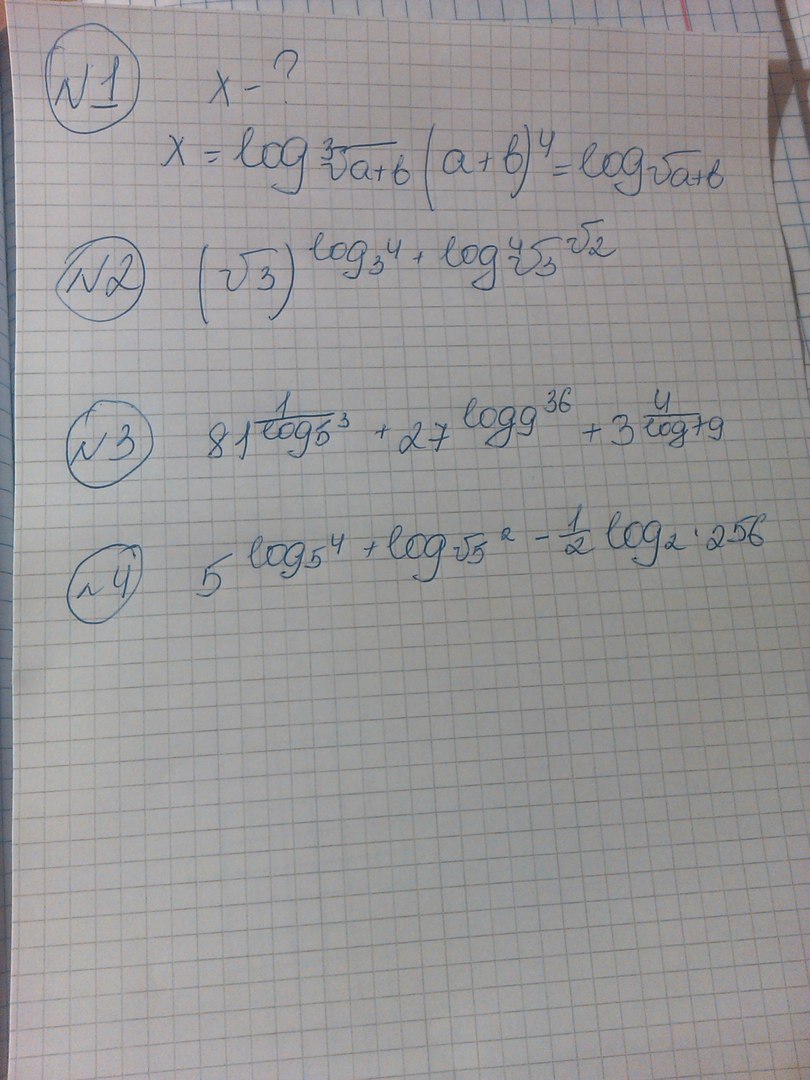 №1 x - ?
x = log ∛(a+b) (a+b)⁴ = log √(a+b)
№2 (√3)^(log₃4 + log_∜3 √2)
№3 81^(1/log₅3) + 27^(log₉36) + 3^(4/log₇9)
№4 5^(log₅4 + log_√5 2 - 1/2 log₂·256)